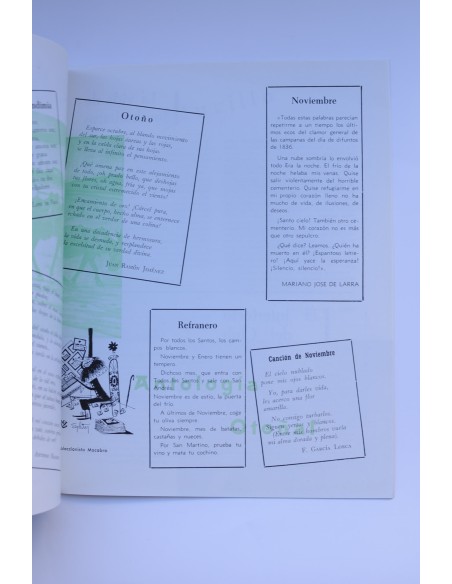 Otoño
Esparce octubre, al blando movimiento
del sur, las hojas áureas y las rojas,
y en la caída clara de sus hojas,
se lleva al infinito el pensamiento.
¡Qué amena paz en este alejamiento
de todo; ¡oh prado bello, que deshojas
tus flores; ¡oh agua, fría ya, que mojas
con tu cristal estremecido el viento!
¡Encantamiento de oro! ¡Cárcel pura,
en que el cuerpo, hecho alma, se enternece
echado en el verdor de una colina!
En una decadencia de hermosura,
la vida se desnuda, y resplandece
la excelsitud de su verdad divina.
Juan Ramón Jiménez
Noviembre
«Todas estas palabras parecían
repetirme a un tiempo los últi-
mos ecos del clamor general de
las campanas del día de difuntos
de 1836.
Una nube sombría lo envolvió
todo. Era la noche. El frío de la
noche helaba mis venas. Quise
salir violentamente del horrible
cementerio. Quise refugiarme en
mi propio corazón lleno no ha
mucho de vida, de ilusiones, de
deseos.
¡Santo cielo! También otro ce-
menterio. Mi corazón no es más
que otro sepulcro.
¿Qué dice? Leamos. ¿Quién ha
muerto en él? ¡Espantoso letre-
ro! ¡Aquí yace la esperanza!
¡Silencio, silencio!».
MARIANO JOSE DE LARRA
Refranero
Por todos los Santos, los cam-
pos blancos.
Noviembre y Enero tienen un
tempero.
Dichoso mes, que entra con
Todos los Santos y sale con San
Andrés.
Noviembre es de estío, la puerta
del frío.
A últimos de Noviembre, coge
tu oliva siempre.
Noviembre, mes de batatas,
castañas y nueces.
Por San Martino, prueba tu
vino y mata tu cochino.
Canción de Noviembre
El cielo nublado
pone mis ojos blancos.
Yo, para darles vida,
les acerco una flor
amarilla.
No consigo turbarlos.
Siguen yertos y blancos.
(Entre mis hombros vuela
mi alma dorada y plena).
F. García Lorca
Antología
Otoño
Coleccionista Macabro